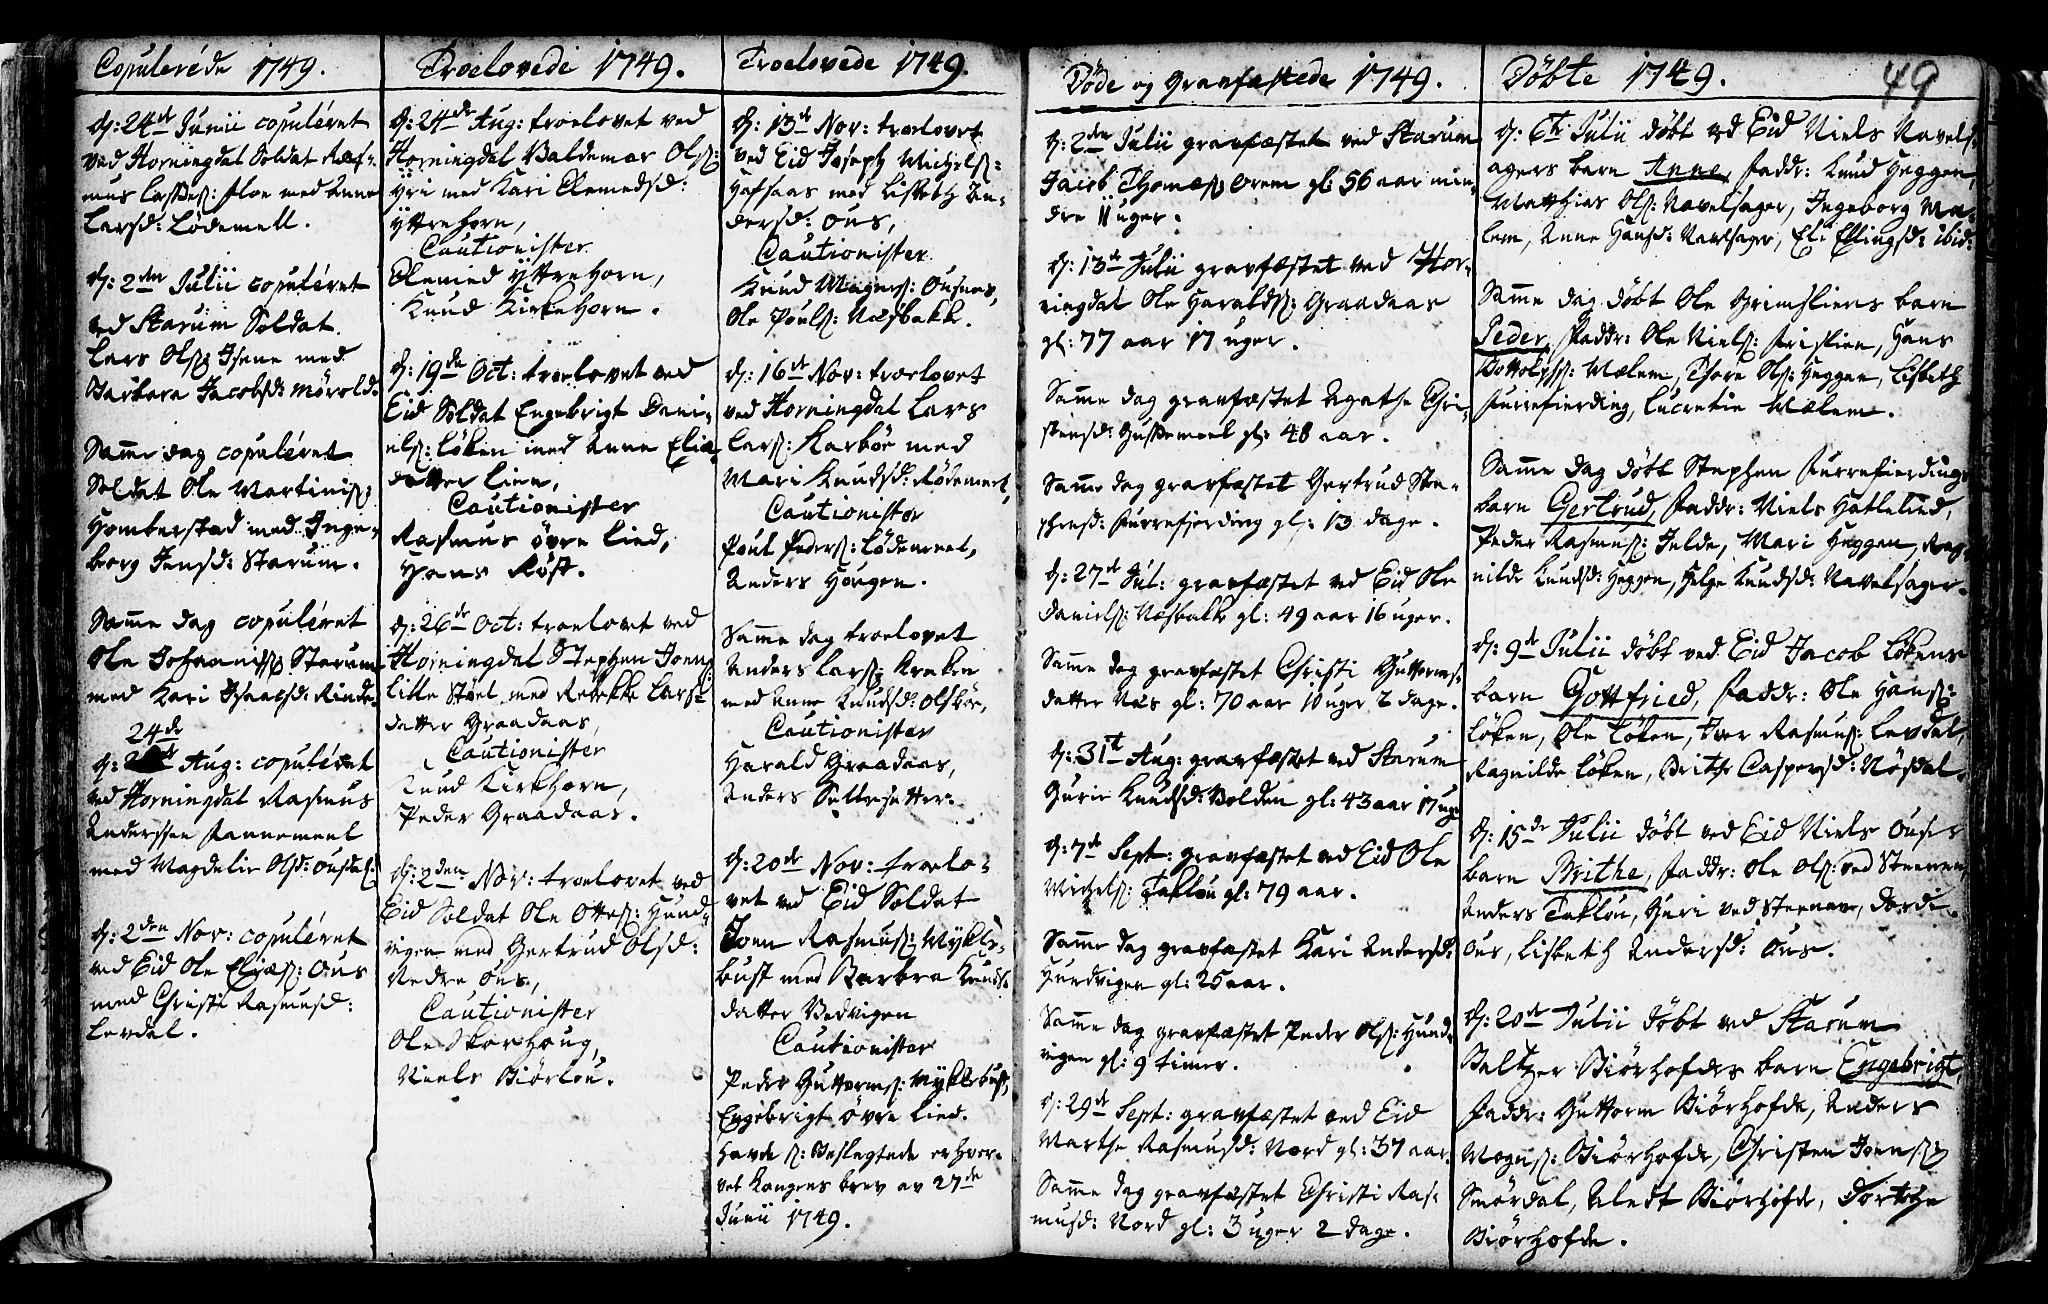 Copulerede 1749.
d: 24de Junii copuléret
ved Horningdal Soldat Ras-
mus Lasses: Floe med Anne
Larsd: Lødemell.
d: 2den Julii copuléret
ved Starum Soldat
Lars Ols: Isene med
Barbara Jacobsd: Mörold.
Samme dag copuléret
Soldat Ole Martinis:
Homberstad med Inge-
borg Jensd: Starum.
Samme dag copuléret
Ole Johannis: Starum
med Kari Isaacsd: Rinde.
24de
d: Aug: copuléret
ved Horningdal Rasmus
Anderssen Fannemeel
med Magdeli Olsd:
d: 2den Nov: copuléret
ved Eid Ole Elias: Ous
med Christi Rasmusd:
Levdal.
Troelovede 1749.
d: 24de Aug: troelovet ved
Horningdal Baldemar Ols:
Hri med Kari Clemedsd:
Yttrehorn,
Cautionister
Clemed Yttrehorn,
Knud Kirkehorn.
d: 19de Oct: troelovet ved
Eid Soldat Engebrigt Dani-
els: Løken med Anne Elias-
datter Lien,
Cautionister
Rasmus øvre Lied,
Hans Løst.
d: 26de Oct: troelovet ved
Horningdal Stephen Joens:
Lille Støel med Rebekke Lars-
datter Graadaas,
Cautionister
Knud Kirkhorn,
Peder Graadaas.
d: 2den Nov: troelovet ved
Eid Soldat Ole Ottes: Hund-
vigen med Gertrud Olsd:
Nedre Ous,
Cautionister
Ole Skorhoug,
Niels Biørlou.
Troelovede 1749.
d: 13de Nov: troelovet
ved Eid Joseph Michels:
Hafsaas med Lisbeth An-
dersd: Ous,
Cautionister
Knud Magnes: Ousnes,
Ole Pouls: Næsbakk.
d: 16de Nov: troelovet
ved Horningdal Lars
Lars: Karbøe med
Mari Knudsd: Rødemeel,
Cautionister
Poul Peders: Lødemeel,
Anders Hougen.
Samme dag troelovet
Anders Lars: Kraken
med Anne Knudsd: Olsbøe,
Cautionister
Harald Graadaas,
Anders Sættresætter.
d: 20de Nov: troelo-
vet ved Eid Soldat
Joen Rasmus: Mykle-
bust med Barbra Knuds-
datter Bedvigen
Cautionister
Peder Guttorms: Myklebust,
Engebrigt øvre Lied.
Havde s: Beslegtede erhver-
vet Kongens brev av 27de
Junii 1749.
Døde og Gravfæstede 1749.
d: 2den Julii gravfæstet ved Starum
Jacob Thomæs: Orem gl: 56 aar min-
dre 11 uger.
d: 13de Julii gravfæstet ved Hor-
ningdal Ole Haralds: Graadaas
gl: 77 aar 17 uger.
Samme dag gravfæstet Agathe Chri-
stensd: Hussemeel gl: 48 aar.
Samme dag gravfæstet Gertrud Ste-
phensd: Furrefjerding gl: 13 dage.
d: 27de Jul: gravfæstet ved Eid Ole
Daniels: Næsbakk gl: 49 aar 16 uger.
Samme dag gravfæstet Christi Guttorms-
datter Næs gl: 70 aar 10 uger 2 dage.
d: 31te Aug: gravfæstet ved Starum
Guri Knudsd: Bolden gl: 43 aar 17 uger
d: 7de Sept: gravfæstet ved Eid Ole
Michels: Taklou gl: 79 aar.
Samme dag gravfæstet Kari Andersd:
Hundvigen gl: 25 aar.
Samme dag gravfæstet Peder Ols: Hund-
vigen gl: 9 timer.
d: 29de Sept: gravfæstet ved Eid
Marthe Rasmusd: Nord gl: 37 aar.
Samme dag gravfæstet Christi Ras-
musd: Nord gl: 3 uger 2 dage.
Døbte 1749.
49
d: 6te Julii døbt ved Eid Niels Navels-
agers barn Anne, Faddr: Knud Heggen,
Matthias Ols: Navelsager, Ingeborg Mæ-
lem, Anne Hansd: Navelsager, Eli Ellingsd: ibid:
Samme dag døbt Ole Grimsliens barn
Peder, Faddr: Ole Niels: Frislien, Hans
Bottolfs: Mælem, Thore Ols: Heggen, Lisbeth
Furrefierding, Lucretie Mælem.
Samme dag døbt Stephen Furrefierdings
barn Gertrud, Faddr: Niels Hatlelied,
Peder Rasmus: Jelde, Mari Heggen, Rag-
nilde Knudsd: Heggen, Helge Knudsd: Navelsager.
d: 9de Julii døbt ved Eid Jacob Løkens
barn Gottfried, Faddr: Ole Hans:
Løken, Ole Løken, Iver Rasmus: Levdal,
Ragnilde Løken, Brithe Caspersd: Nøsdal.
d: 15de Julii døbt ved Eid Niels Ouses
barn Brithe, Faddr: Ole Ols: ved Steenen,
Anders Taklou, Guri ved Steenen, Dordi
Ous, Lisbeth Andersd: Ous.
d: 20de Julii døbt ved Starum
Baltzer Biørhofdes barn Engebrigt,
Faddr: Guttorm Biørhofde, Anders
Mogns: Biørhofde, Christen Joens:
Smørdal, Aledt Biørhofde, Dorthe
Biørhofde.